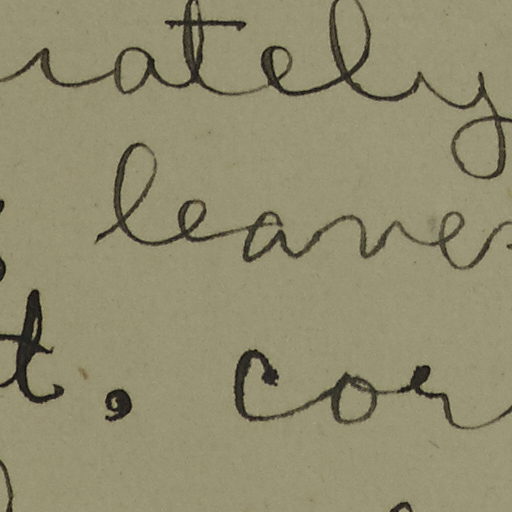 rately
leaves
t, cor